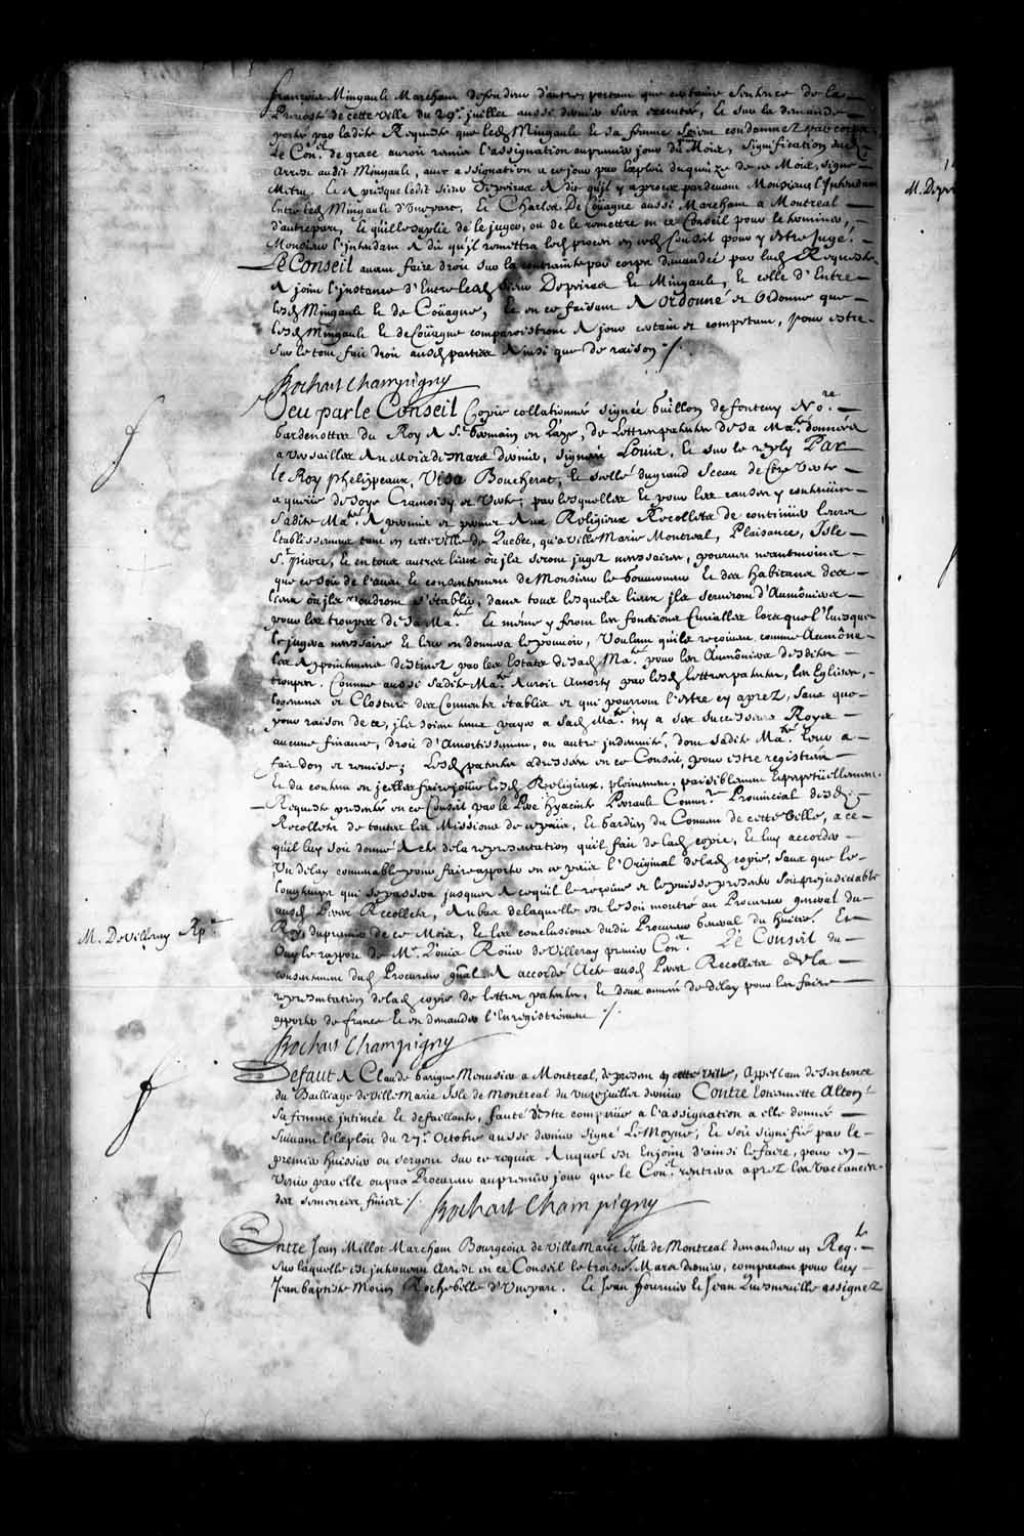 François Mingault Marchant defendeur d'autre, portant que certaine sentence de la
Prevosté de cette ville du 29e juillet aussi dernier sera executée, Et sur la demande
portée par ladite Requeste que led. Mingault et sa femme soient condamnez par corps,
Le Conr. de grace auroit remis l'assignation au premier jour du Mois, signification dud.
Arrest audit Mingault, avec assignation a ce jour par exploit du quinze de ce Mois, signé
Metru, Et a presque ledit sieur Depeiras a dit qu'il y a procez pardevant Monsieur l'Intendant
Entre led. Mingault d'Une part, Et Charles De Coüagne aussi Marchant a Montreal
d'autre part, lequel le suplie de le juger, ou de le remettre en ce Conseil pour le terminer,
Monsieur l'Intendant a dit qu'il remettra led. procez en ced. Conseil pour y estre jugé.
Le Conseil avant faire droit sur la contrainte par corps demandée par lad. Requeste
A joint l'instance d'Entre led. sieur Depeiras Et Mingault, Et celle d'Entre
lesd. Mingault Et de Coüagne, Et en ce faisant A ordonné et Ordonne que
lesd. Mingault Et de Coüagne comparoistront A jour certain et competant, pour estre
sur le tout fait droit ausd. parties Ainsi que de raison ./.
Bochart Champigny
Veu par le Conseil Copie collationnée signée Guillon de fonteny Nore.
Gardenottes du Roy A St. Germain en Laye, de Lettres patentes de Sa Maté. données
a Versailles Au Mois de Mars dernier, signées Louis, Et sur le reply Par
le Roy Phelypeaux, Visa Boucherat, Et scellé du grand sceau de Cire Verte
a queüe de soye Cramoisy et Verte; par lesquelles Et pour les causes y contenües
Sadite Maté. A permis et permet Aux Religieux Recollets de continüer leurs
Etablissemens tant en cette ville de Quebec, qu'a Ville Marie Montreal, Plaisance, Isle
St. pierre, Et en tous autres lieux où jls seront jugez necessaires, pourveu neantmoins
que ce soit de l'aveu Et consentement de Monsieur le Gouverneur Et des habitans des
lieux où jls voudront s'établir, dans tous lesquels lieux jls serviront d'Aumôniers
pour les troupes de Sa Maté. Et même y feront les fonctions Curialles lorsque l'Evesque
le jugera necessaire Et leur en donnera le pouvoir, Voulant qu'ils reçoivent comme Aumôniers
les Appointemens destinez par les Estats de Sad. Maté. pour les Aumôniers desdites
troupes. Comme aussi Sadite Maté. Auroit Amorty par lesd. lettres patentes, les Eglises,
logemens et Closture des Couvents établis et qui pourront l'estre cy aprez, sans que
pour raison de ce, jls soient tenus payer a Sad. Maté. ny a ses Successeurs Roys
aucune finance, droit d'Amortissement, ou autre indemnité, dont Sadite Maté. leur a
fait don et remise; Lesd. patentes adressées en ce Conseil, pour estre registrées
Et du contenu en jcelles faire joüir lesd. Religieux, pleinement, paisiblement Et perpetüellement.
Requeste presentée en ce Conseil par le Pere Hyacinte Perrault Commre. Provincial desd.
Recollets de toutes les Missions de ce païs, Et Gardien du Couvent de cette Ville, a ce
qu'il luy soit donné Acte de la representation qu'il fait de lad. copie, Et luy accorder
Un delay convenable pour faire apporter en ce païs l'Original de lad. copie, sans que le
longtemps qui se passera jusques A ce qu'il le reçoive et le puisse presenter soit prejudiciable
ausd. Peres Recollets, Au bas de laquelle est le soit montré au Procureur general du
Roy, du premier de ce Mois, Et les conclusions dudit Procureur General du huitie. Et
Ouy le raport de Me. Loüis Roüer de Villeray premier Conr. Le Conseil du
consentement dud. Procureur gñal A accordé Acte ausd. Peres Recollets de la
M. De Villeray Rpr.
representation de lad. copie de lettres patentes, Et deux années de delay pour les faire
aporter de france Et en demander l'Enregistrement ./.
Bochart Champigny
Defaut A Claude Garigue Menusier a Montreal, de present en cette ville, Appellant de sentence
du Bailliage de Ville Marie Isle de Montreal du onze juillet dernier Contre Antoinette
sa femme intimée Et defaillante, faute d'estre comparüe a l'assignation a elle donnée
suivant l'Exploit du 27e Octobre aussi dernier signé LeMoyne; Et soit signifié par le
premier huissier ou sergent sur ce requis Auquel est Enjoint d'ainsi le faire, pour en
Venir par elle ou par Procureur au premier jour que le Conl. rentrera aprez les Vaccances
des semences finies ./. Bochart Champigny
Entre Jean Millot Marchant Bourgeois de Ville Marie Isle de Montreal demandeur en Reqte.
sur laquelle est intervenu Arrest en ce Conseil le troise. Mars dernier, comparant pour luy
Jean baptiste Morin Rochebelle d'Une part. Et Jean fournier Et Jean Quesneville assignez